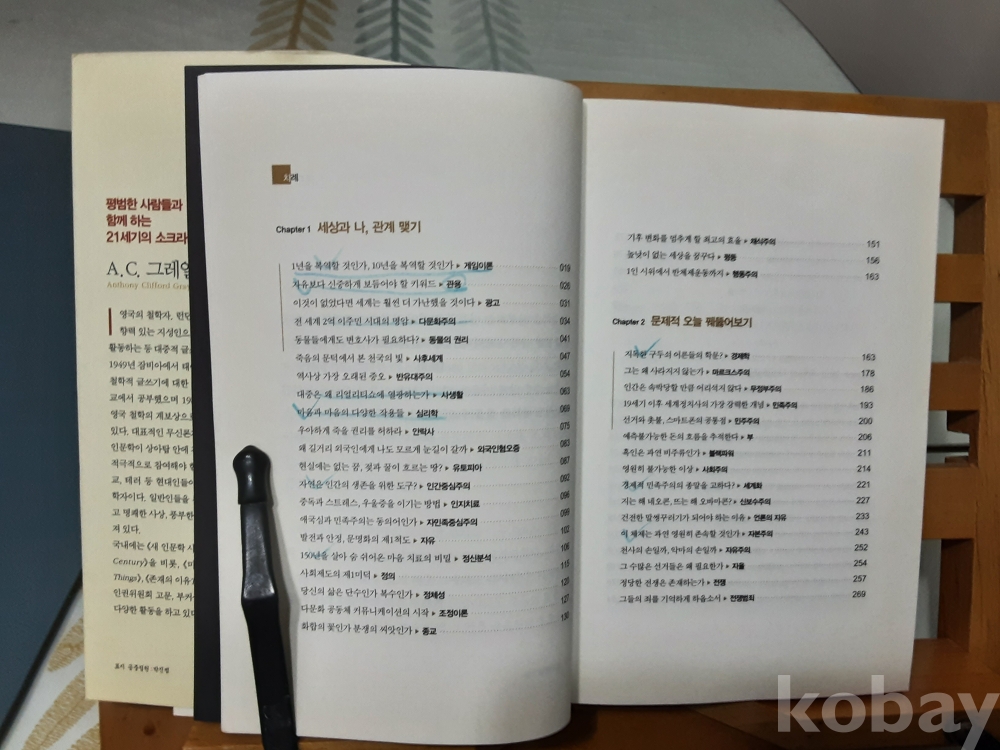 평범한 사람들과
함께 하는
21세기의 소크라
A.C. 그레일
Anthony Clifford Gray
영국의 철학자, 런던
향력 있는 지성인으
활동하는 등 대중적 글
1949년 잠비아에서 태
철학적 글쓰기에 대한
교에서 공부했으며 19
영국 철학의 계보상으
있다. 대표적인 무신론
인문학이 상아탑 안에
적극적으로 참여해야 할
교, 테러 등 현대인들이
학자이다. 일반인들을
고 명쾌한 사상, 풍부한
져 있다.
국내에는 《새 인문학 사
Century》을 비롯, 《미
Things》, 《존재의 이유
인권위원회 고문, 부커
다양한 활동을 하고 있다
표지
차례
Chapter 1 세상과 나, 관계 맺기
1년을 복역할 것인가, 10년을 복역할 것인가 ▶ 게임이론 019
자유보다 신중하게 보듬어야 할 키워드 ▶ 관용 026
이것이 없었다면 세계는 훨씬 더 가난했을 것이다 ▶ 광고 031
전 세계 2억 이주민 시대의 명암 ▶ 다문화주의 034
동물들에게도 변호사가 필요하다? ▶ 동물의 권리 041
죽음의 문턱에서 본 천국의 빛 ▶ 사후세계 047
역사상 가장 오래된 증오 ▶ 반유대주의 054
대중은 왜 리얼리티쇼에 열광하는가 ▶ 사생활 063
마음과 마음의 다양한 작용들 ▶ 심리학 069
우아하게 죽을 권리를 허하라 ▶ 안락사 075
왜 길거리 외국인에게 나도 모르게 눈길이 갈까 ▶ 외국인혐오증 083
현실에는 없는 꿈, 젖과 꿀이 흐르는 땅? ▶ 유토피아 087
자연은 인간의 생존을 위한 도구? ▶ 인간중심주의 092
중독과 스트레스, 우울증을 이기는 방법 ▶ 인지치료 096
애국심과 민족주의는 동의어인가 ▶ 자민족중심주의 099
발전과 안정, 문명화의 제1척도 ▶ 자유 102
150년을 살아 숨 쉬어온 마음 치료의 비밀 ▶ 정신분석 106
사회제도의 제1미덕 ▶ 정의 115
당신의 삶은 단수인가 복수인가 ▶ 정체성 125
다문화 공동체 커뮤니케이션의 시작 ▶ 조정이론 127
화합의 꽃인가 분쟁의 씨앗인가 ▶ 종교 130
기후 변화를 멈추게 할 최고의 효율 ▶ 채식주의 151
높낮이 없는 세상을 꿈꾸다 ▶ 평등 156
1인 시위에서 반체제운동까지 ▶ 행동주의 163
Chapter 2 문제적 오늘 꿰뚫어보기
지독한 구두쇠 어른들의 학문? ▶ 경제학 163
그는 왜 사라지지 않는가 ▶ 마르크스주의 178
인간은 속박당할 만큼 어리석지 않다 ▶ 무정부주의 186
19세기 이후 세계정치사의 가장 강력한 개념 ▶ 민족주의 193
선거와 촛불, 스마트폰의 공통점 ▶ 민주주의 200
예측불가능한 돈의 흐름을 추적한다 ▶ 부 206
흑인은 과연 비주류인가 ▶ 블랙파워 211
영원히 불가능한 이상 ▶ 사회주의 214
경제적 민족주의의 종말을 고하다? ▶ 세계화 221
지는 해 네오콘, 뜨는 해 오바마콘? ▶ 신보수주의 227
건전한 말썽꾸러기가 되어야 하는 이유 ▶ 언론의 자유 233
이 체제는 과연 영원히 존속할 것인가 ▶ 자본주의 243
천사의 손일까, 악마의 손일까 ▶ 자유주의 252
그 수많은 선거들은 왜 필요한가 ▶ 자율 254
정당한 전쟁은 존재하는가 ▶ 전쟁 257
그들의 죄를 기억하게 하옵소서 ▶ 전쟁범죄 269
kobay